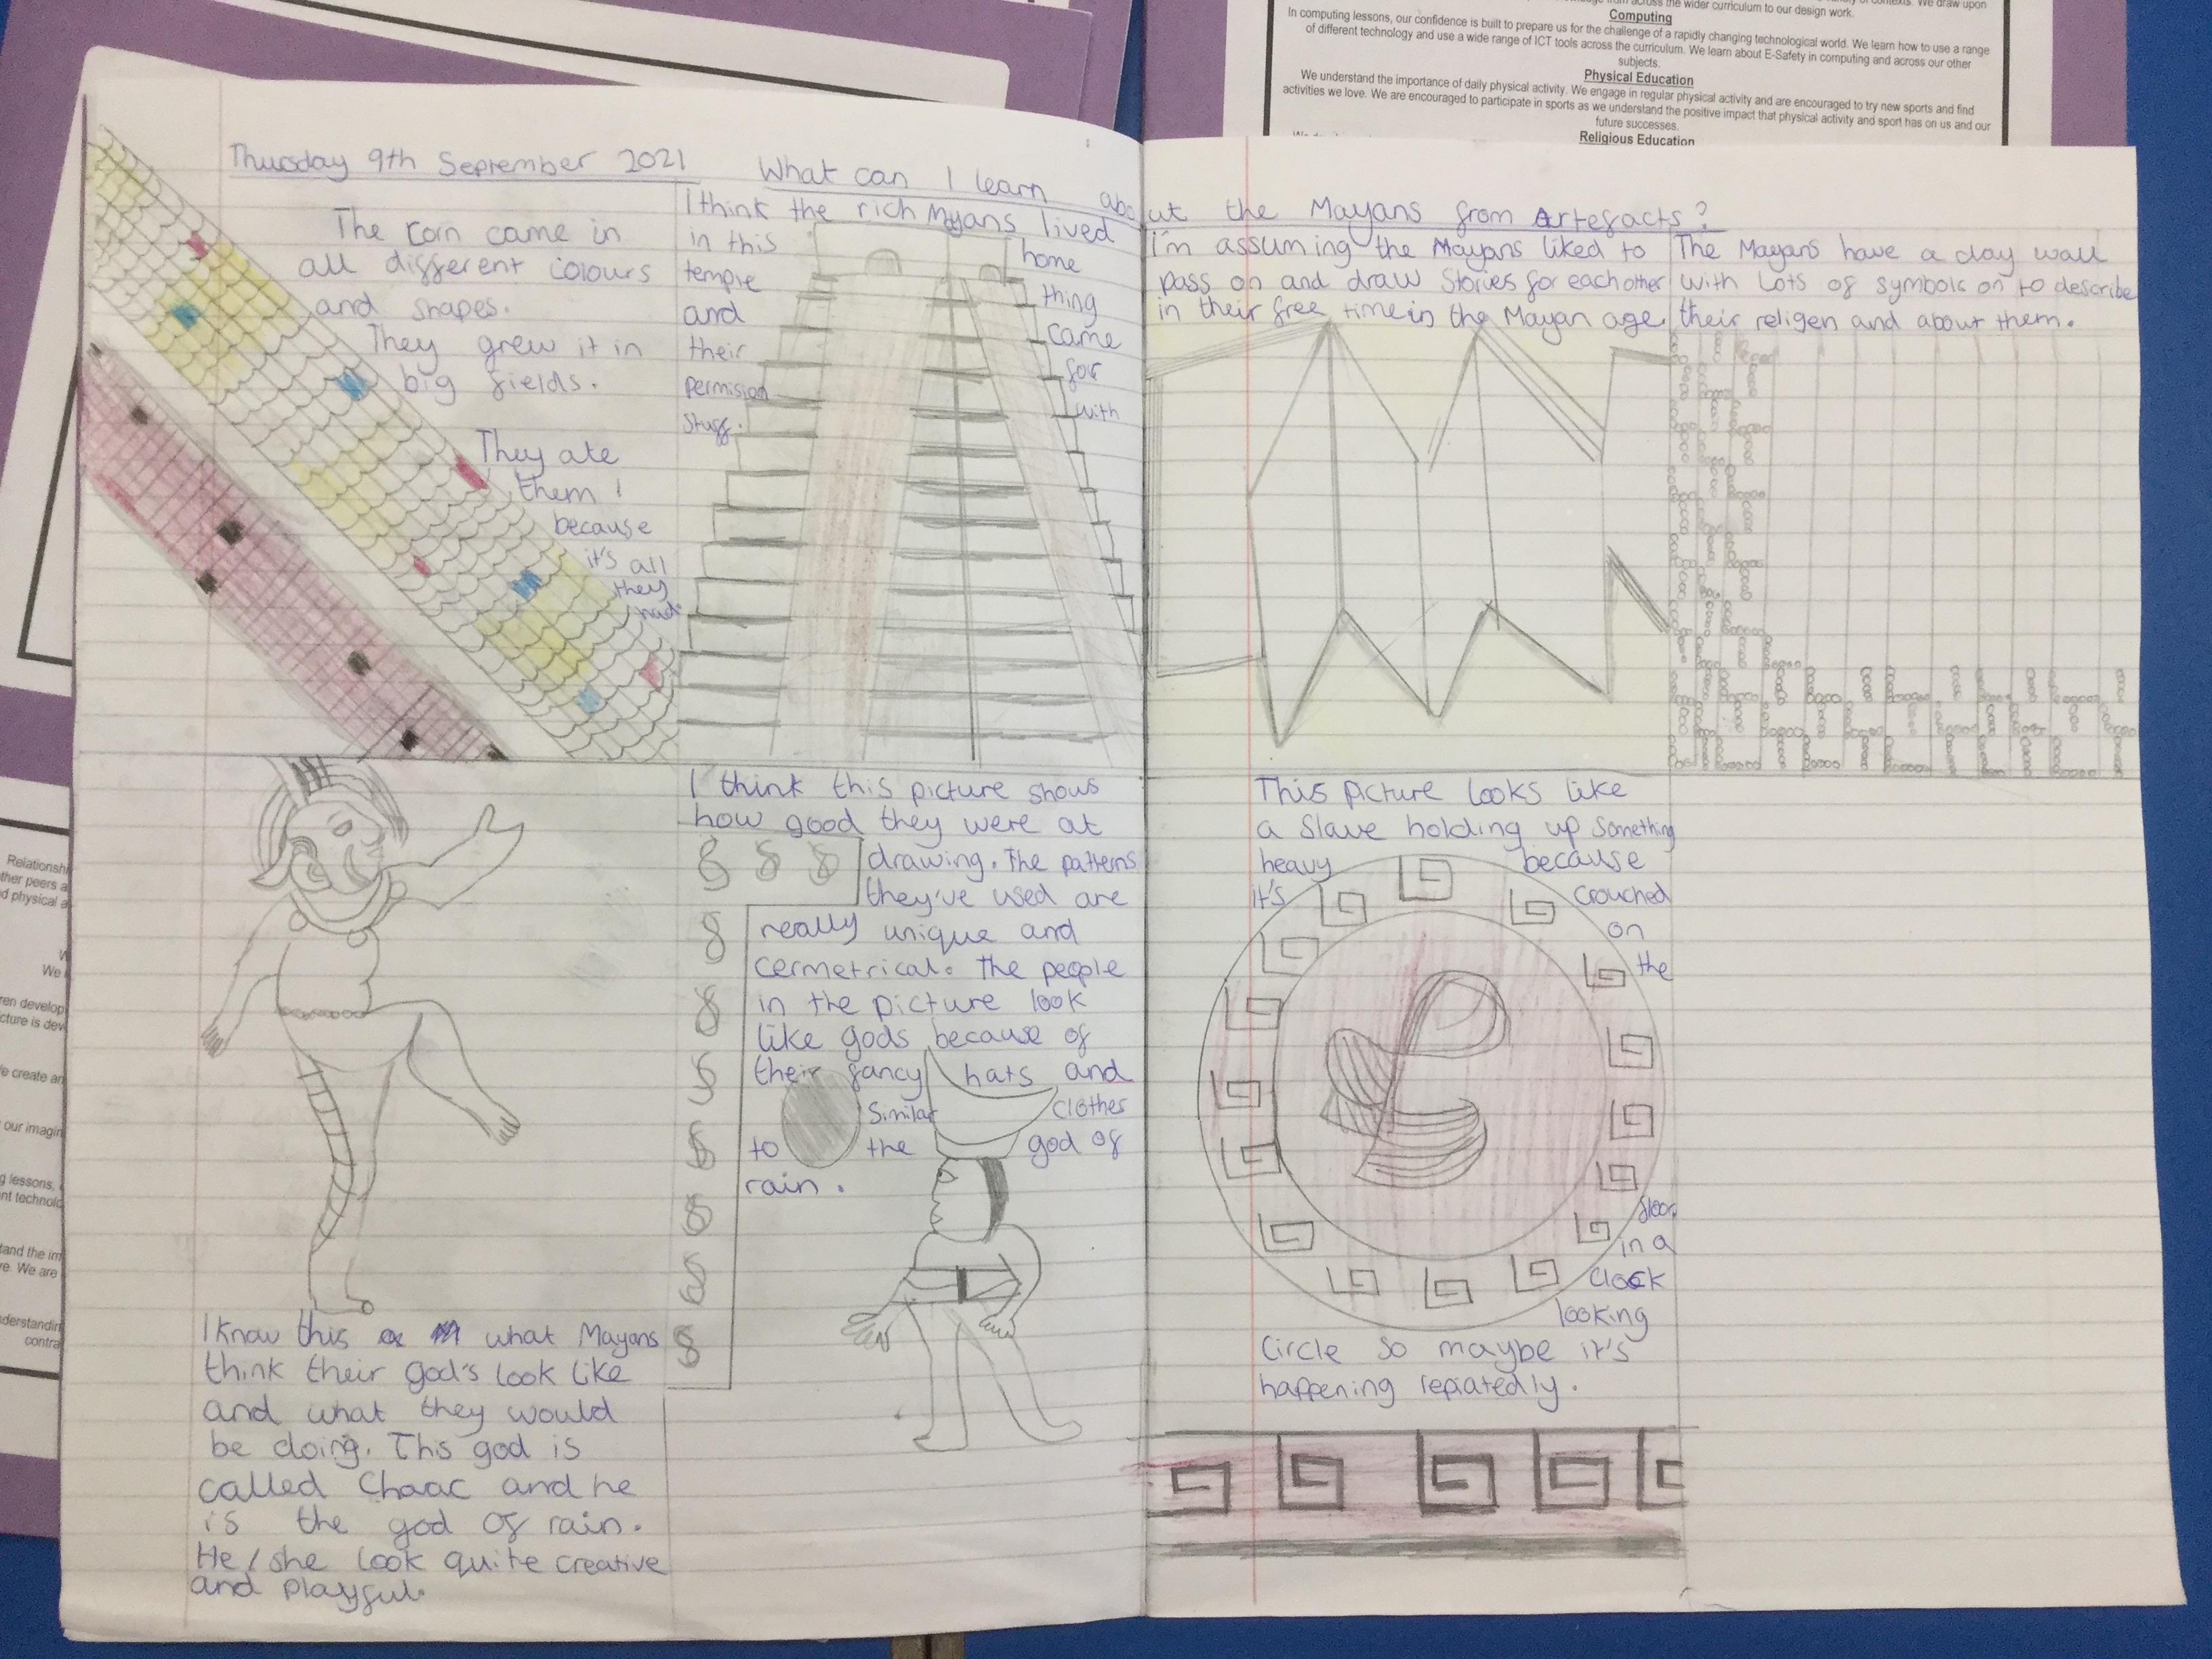 across the wider curriculum to our design work.
Computing
In computing lessons, our confidence is built to prepare us for the challenge of a rapidly changing technological world. We learn how to use a range
of different technology and use a wide range of ICT tools across the curriculum. We learn about E-Safety in computing and across our other
subjects.
Physical Education
We understand the importance of daily physical activity. We engage in regular physical activity and are encouraged to try new sports and find
activities we love. We are encouraged to participate in sports as we understand the positive impact that physical activity and sport has on us and our
future successes.
Religious Education
Thursday 9th September 2021
What can I learn about the Mayans from Artefacts?
The corn came in
all different colours
and shapes.
They grew it in
big fields.
They ate
them
because
it's all
they
had
I think the rich Myans lived
in this home
temple thing
and came
their for
permision with
stuff.
I'm assuming the Mayans liked to
pass on and draw stories for each other
in their free time in the Mayan age
The Mayans have a clay wall
with lots of symbols on to describe
their religen and about them.
I know this what Mayans
think their god's look like
and what they would
be doing. This god is
called Chaac and he
is the god of rain.
He/she look quite creative
and playful.
I think this picture shows
how good they were at
drawing. The patterns
they've used are
really unique and
cermetrical. The people
in the picture look
like gods because of
their fancy hats and
similar clothes
to the god of
rain.
This picture looks like
a slave holding up something
heavy because
it's crouched
on
the
floor
in a
clock
looking
circle so maybe it's
happening repiatedly.